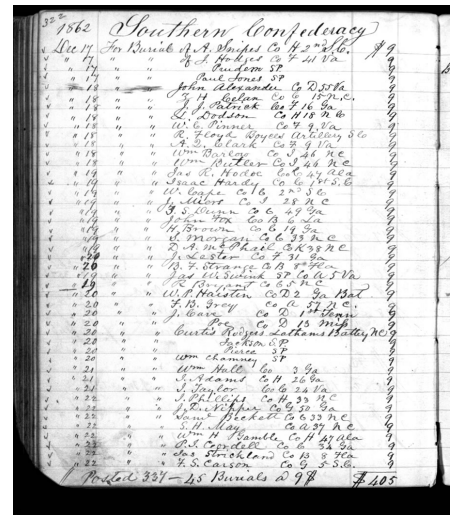 322
1862 Southern Confederacy
Dec 17 For Burial of A. Snipes Co H 2nd S.C. $ 9
" 17 " " of J. Hodges Co F 41 Va 9
" 17 " " Prudem SP 9
" 17 " " Paul Jones SP 9
" 18 " " John Alexander Co D 55 Va 9
" 18 " " Z. H. Celan Co C 15 N.C. 9
" 18 " " J. J. Patrick Co F 16 Ga 9
" 18 " " L. Dodson Co H 18 N C 9
" 18 " " W. C. Pirner Co F 9 Va 9
" 18 " " R. Floyd Artillery S Co 9
" 18 " " A. D. Clark Co F 9 Va 9
" 18 " " Wm Barlow Co I 46 NC 9
" 18 " " Wm Butler Co I 46 NC 9
" 19 " " Jas R. Hodoc Co C 47 Ala 9
" 19 " " Isaac Hardy Co C 1st S.C 9
" 19 " " W. Cape Co B 2nd S.C 9
" 19 " " J. Miors Co I 28 N C 9
" 19 " " Z. S. Dunn Co C 49 Ga 9
" 19 " " John Fox Co B 6 La 9
" 19 " " H. Brown Co C 19 Ga 9
" 19 " " S. Morgan Co C 33 N C 9
" 19 " " D. A. McPhail Co K 38 N C 9
" 20 " " J. Lester Co F 31 Ga 9
" 20 " " B. F. Strange Co B 8th Fla 9
" 19 " " Jas W. Swink SP Co A 5 Va 9
" 19 " " R Bryant Co C 5 N C 9
" 20 " " W. P. Haistin Co D 2 Ga Bat 9
" 20 " " F. B. Grey Co A 57 N.C. 9
" 20 " " J. Cave Co D 1st Tenn 9
" 20 " " Poe Co D 13 Miss 9
" 20 " " Curtis Rodgers Lathams Battery NC 9
" 20 " " Jackson S.P 9
" 20 " " Pierce SP 9
" 20 " " Wm Chamney SP 9
" 21 " " Wm Hall Co 3 Ga 9
" 21 " " J. Adams Co H 26 Ga 9
" 21 " " J. Taylor Co C 24 Va 9
" 22 " " J. Phillips Co H 33 N C 9
" 22 " " J. D. Nipper Co G 50 Ga 9
" 22 " " Saml Beckett Co C 33 N C 9
" 22 " " S. H. May Co A 37 N C 9
" 22 " " Wm H Gamble Co H 47 Ala 9
" 22 " " P. T. Cordell Co C 34 Ga 9
" 22 " " Jas Strickland Co B 8 Fla 9
" 22 " " F. S. Carson Co G 5 S.C. 9
Posted 337 - 45 Burials @ 9$ $ 405